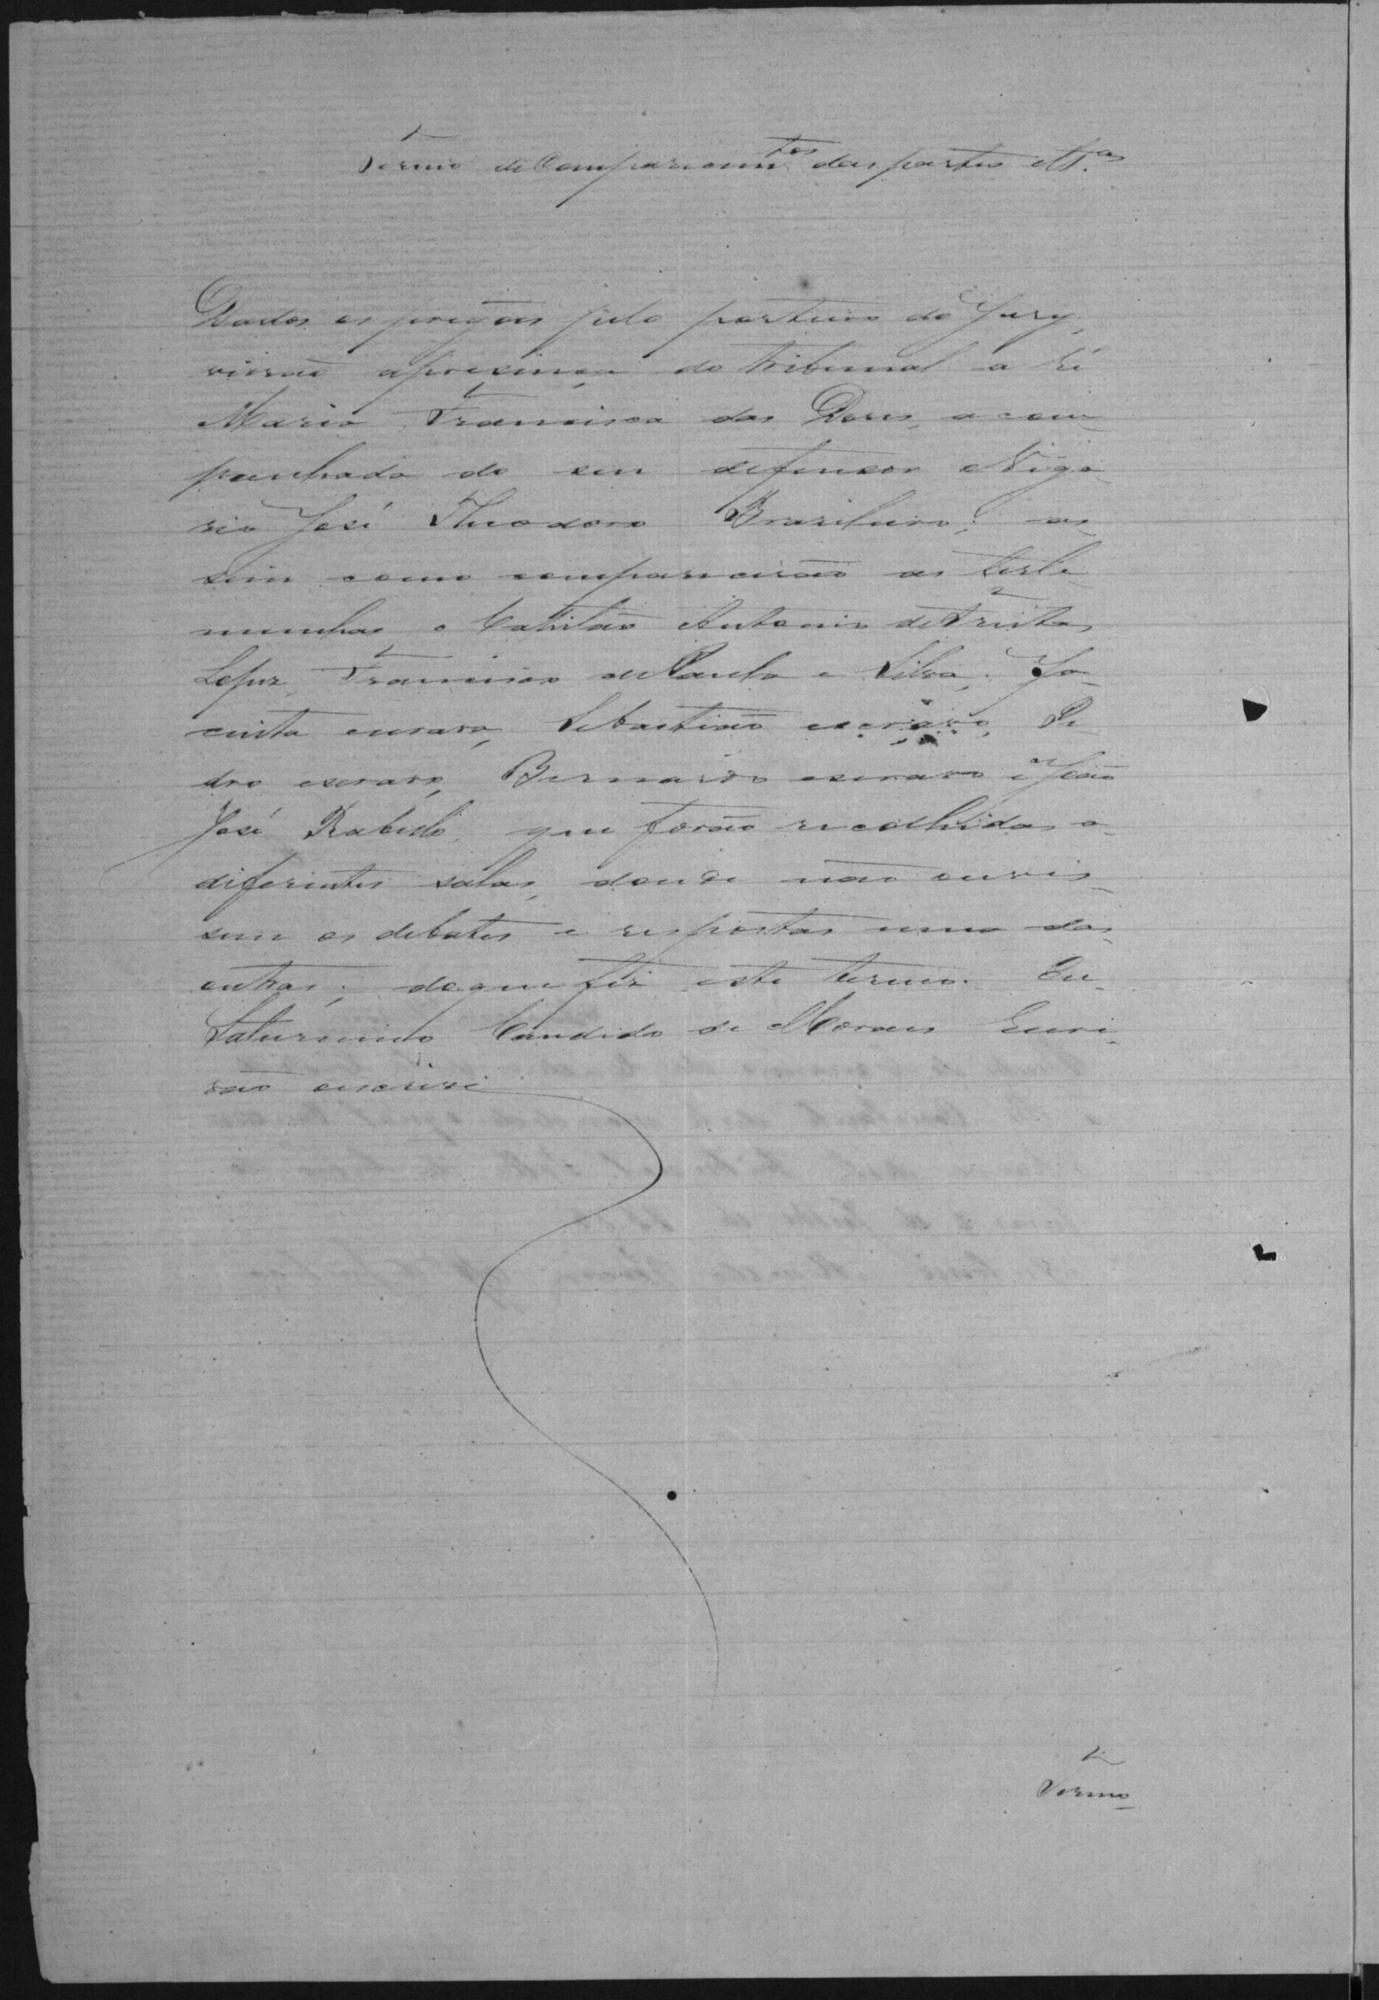 Termo de Comparecim.tos das partes e T.as
Dados os pregões pelo porteiro do Jury,
vierão a presença do tribunal a ré
Maria Francisca das Dores, acom-
panhada do seu defensor Viga-
rio José Theodoro Brasileiro; as-
sim como comparecerão as teste-
munhas o Capitão Antonio de Freitas
Lopes, Francisco de Paula e Silva, Ja-
cinta escrava, Sebastião escravo, Pe-
dro escravo, Bernardo escravo e João
José Rabello, que forão recolhidas a
diferentes salas, donde não ouvis-
sem os debates e respostas umas das
outras; do que fiz este termo. Eu
Saturnino Candido de Moraes Escri-
vão escrivi
Termo